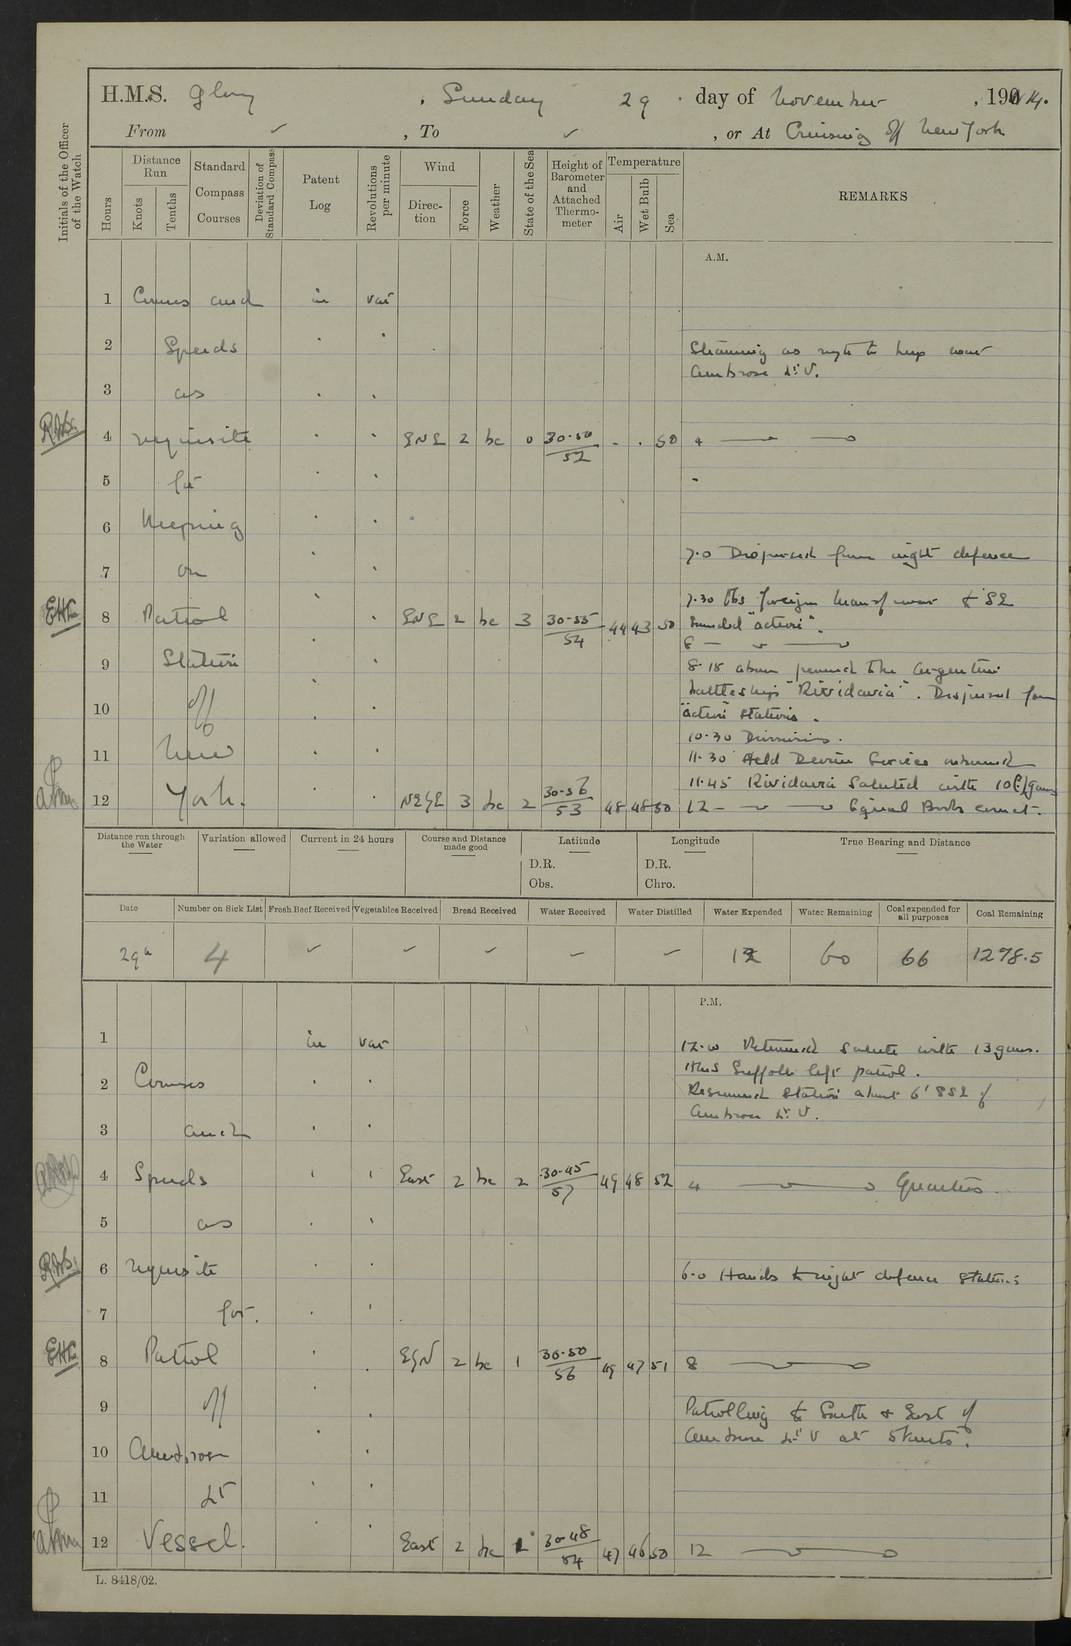 H.M.S. Glory, Sunday 29 day of November, 1914.
From ✓, To ✓, or At Cruising off New York
Initials of the Officer of the Watch
Hours
Distance Run
Knots
Tenths
Standard Compass Courses
Deviation of Standard Compass
Patent Log
Revolutions per minute
Wind
Direction
Force
Weather
State of the Sea
Height of Barometer and Attached Thermometer
Temperature
Air
Wet Bulb
Sea
REMARKS
A.M.
1 Courses and in var
2 Speeds
Steaming as req to keep near
Ambrose Lt. V.
3 as
4 requisite ENE 2 bc 0 30.50/52 - . 50 4
5 for
6 keeping
7.0 Dispersed from night defence
7 on
7.30 Obs foreign man of war to SE
8 Patrol ENE 2 bc 3 30.55/54 44 43 50 Sounded "action".
8
9 Station
8.18 Argentine
battleship "Rividavia". Dispersed from
10 off
"action" stations.
10.30 Divisions.
11 New
11.30 Held Devine Service
11.45 Rividavia Saluted with guns
12 York. NE by E 3 bc 2 30.56/53 48 48 50 12 Equal Books correct.
Distance run through the Water
Variation allowed
Current in 24 hours
Course and Distance made good
Latitude
D.R.
Obs.
Longitude
D.R.
Chro.
True Bearing and Distance
Date
Number on Sick List
Fresh Beef Received
Vegetables Received
Bread Received
Water Received
Water Distilled
Water Expended
Water Remaining
Coal expended for all purposes
Coal Remaining
29th 4 ✓ – – – – 12 60 66 1278.5
P.M.
1 in var
Returned Salute with 13 guns.
HMS Suffolk left patrol.
2 Courses
Resumed Station about 6' SSE of
Ambrose Lt. V.
3 and
4 Speeds East 2 bc 2 30.45/57 49 48 52 4 Quarters.
5 as
6 requisite 6.0 Hands to night defence stations
7 for.
8 Patrol E by N 2 bc 1 30.50/56 49 47 51 8
9 off
Patrolling to South & East of
Ambrose Lt V at 5 knots.
10 Ambrose
11 Lt
12 Vessel. East 2 bc 1 30.48/54 47 46 50 12
L. 8418/02.